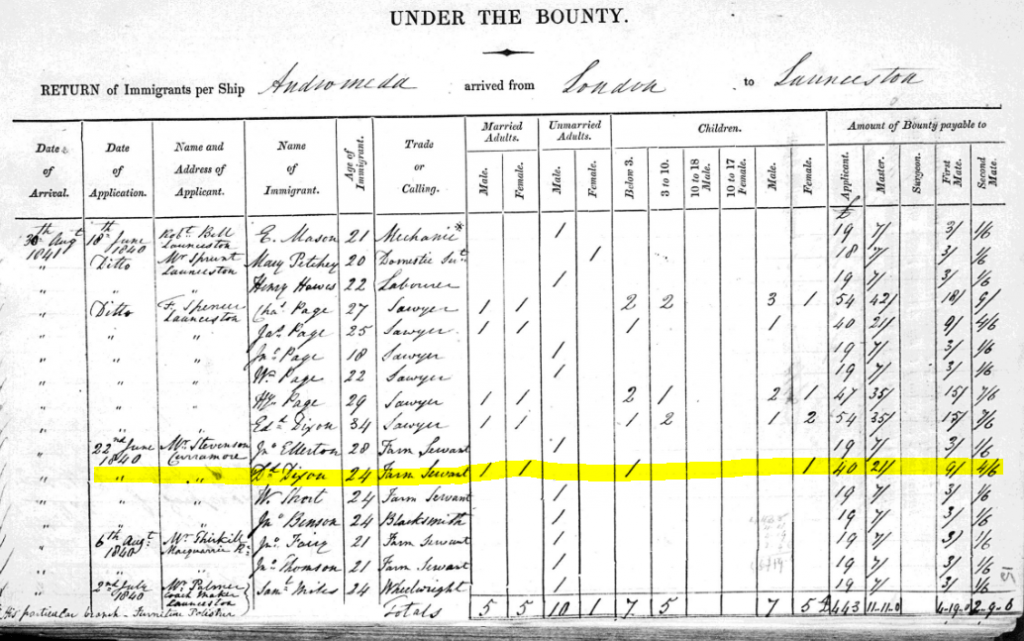 UNDER THE BOUNTY.
RETURN of Immigrants per Ship Andromeda arrived from London to Launceston
Date of Arrival. Date of Application. Name and Address of Applicant. Name of Immigrant. Age of Immigrant. Trade or Calling. Married Adults. Male. Female. Unmarried Adults. Male. Female. Children. Below 3. 3 to 10. 10 to 18 Male. 10 to 17 Female. Male. Female. Amount of Bounty payable to Applicant. Master. Surgeon. First Mate. Second Mate.
£
30th Augt 1841 18th June 1840 Robt. Bell Launceston E. Mason 21 Mechanic* 1 19 7/ 3/ 1/6
" Ditto Mr Sprunt Launceston Mary Petchey 20 Domestic Sert 1 18 7/ 3/ 1/6
" " " Henry Hawes 22 Labourer 1 19 7/ 3/ 1/6
" Ditto F. Spencer Launceston Chas Page 27 Sawyer 1 1 2 2 3 1 54 42/ 18/ 9/
" " " Jas Page 25 Sawyer 1 1 1 1 40 21/ 9/ 4/6
" " " Jno Page 18 Sawyer 1 19 7/ 3/ 1/6
" " " Wm Page 22 Sawyer 1 19 7/ 3/ 1/6
" " " Hy Page 29 Sawyer 1 1 2 1 2 1 47 35/ 15/ 7/6
" " " Edd Dixon 34 Sawyer 1 1 1 2 1 2 54 35/ 15/ 7/6
" 22nd June 1840 Mr. Stevenson Curramore Jno Ellerton 28 Farm Servant 1 19 7/ 3/ 1/6
" " " Dd Dixon 24 Farm Servant 1 1 1 1 40 21/ 9/ 4/6
" " " Wm Short 24 Farm Servant 1 19 7/ 3/ 1/6
" " " Jno Benson 24 Blacksmith 1 19 7/ 3/ 1/6
" 6th Augt 1840 Mr Thirkill Macquarrie Rr Jno 21 Farm Servant 1 19 7/ 3/ 1/6
" " " Jno Thomson 21 Farm Servant 1 19 7/ 3/ 1/6
" 2nd July 1840 Mr Palmer Coach Maker Launceston Saml Miles 24 Wheelwright 1 19 7/ 3/ 1/6
*His particular branch - Furniture Polisher Totals 5 5 10 1 7 5 7 5 £443 11-11-0 4-19-0 2-9-6
51